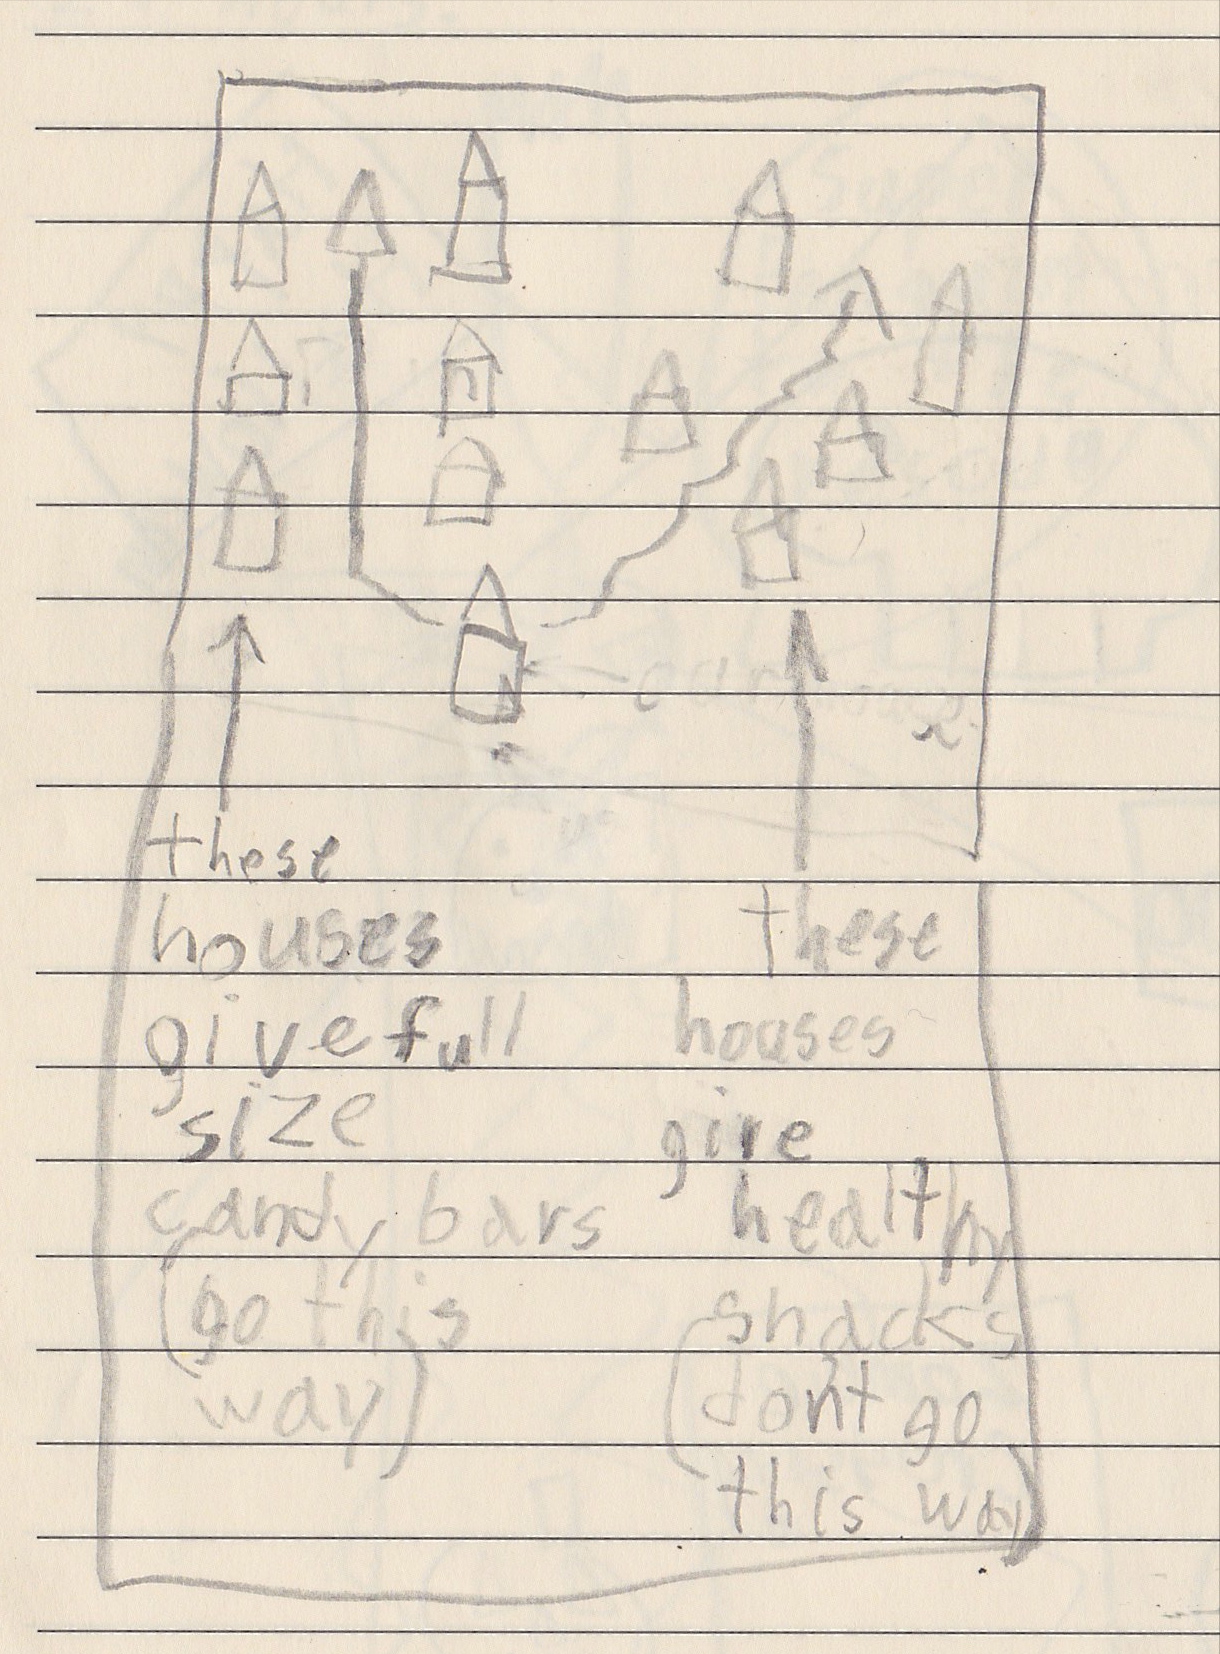 our house
these
houses
give full
size
candy bars
(go this
way)
these
houses
give
healthy
snacks
(dont go
this way)